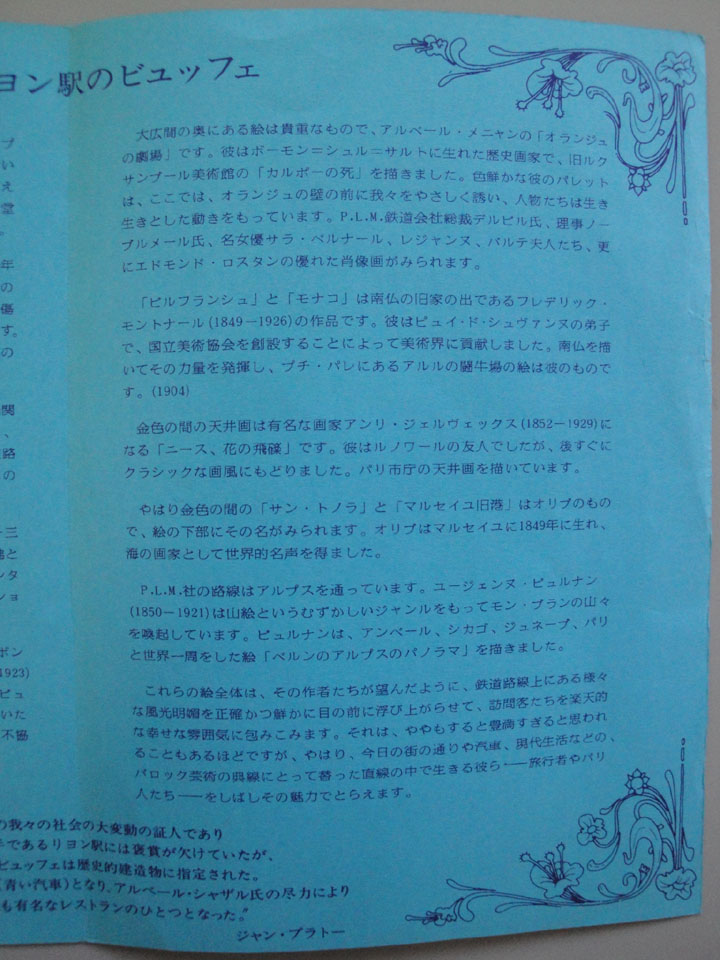 ヨン駅のビュッフェ
大広間の奥にある絵は貴重なもので、アルベール・メニャンの「オランジュ
の劇場」です。彼はボーモン＝シュル＝サルトに生れた歴史画家で、旧ルク
サンブール美術館の「カルポーの死」を描きました。色鮮かな彼のパレット
は、ここでは、オランジュの壁の前に我々をやさしく誘い、人物たちは生き
生きとした動きをもっています。P.L.M.鉄道会社総裁デルビル氏、理事ノー
ブルメール氏、名女優サラ・ベルナール、レジャンヌ、バルテ夫人たち、更
にエドモンド・ロスタンの優れた肖像画がみられます。
「ビルフランシュ」と「モナコ」は南仏の旧家の出であるフレデリック・
モントナール(1849－1926)の作品です。彼はピュイ・ド・シュヴァンヌの弟子
で、国立美術協会を創設することによって美術界に貢献しました。南仏を描
いてその力量を発揮し、プチ・パレにあるアルルの闘牛場の絵は彼のもので
す。(1904)
金色の間の天井画は有名な画家アンリ・ジェルヴェックス(1852－1929)に
なる「ニース、花の飛礫」です。彼はルノワールの友人でしたが、後すぐに
クラシックな画風にもどりました。パリ市庁の天井画を描いています。
やはり金色の間の「サン・トノラ」と「マルセイユ旧港」はオリブのもの
で、絵の下部にその名がみられます。オリブはマルセイユに1849年に生れ、
海の画家として世界的名声を得ました。
P.L.M.社の路線はアルプスを通っています。ユージェンヌ・ビュルナン
(1850－1921)は山絵というむずかしいジャンルをもってモン・ブランの山々
を喚起しています。ビュルナンは、アンベール、シカゴ、ジュネーブ、パリ
と世界一周をした絵「ベルンのアルプスのパノラマ」を描きました。
これらの絵全体は、その作者たちが望んだように、鉄道路線上にある様々
な風光明媚を正確かつ鮮かに目の前に浮び上がらせて、訪問客たちを楽天的
な幸せな雰囲気に包みこみます。それは、ややもすると豊満すぎると思われ
ることもあるほどですが、やはり、今日の街の通りや汽車、現代生活などの、
バロック芸術の曲線にとって替った直線の中で生きる彼ら――旅行者やパリ
人たち――をしばしその魅力でとらえます。
の我々の社会の大変動の証人であり
であるリヨン駅には褒賞が欠けていたが、
ビュッフェは歴史的建造物に指定された。
(青い汽車)となり、アルベール・シャザル氏の尽力により
も有名なレストランのひとつとなった。"
ジャン・プラトー
プ
い
え
堂
。
年
の
傷
す。
の
関
、
路
の
三
と
ンタ
ショ
ポン
1923)
ビュ
いた
不協